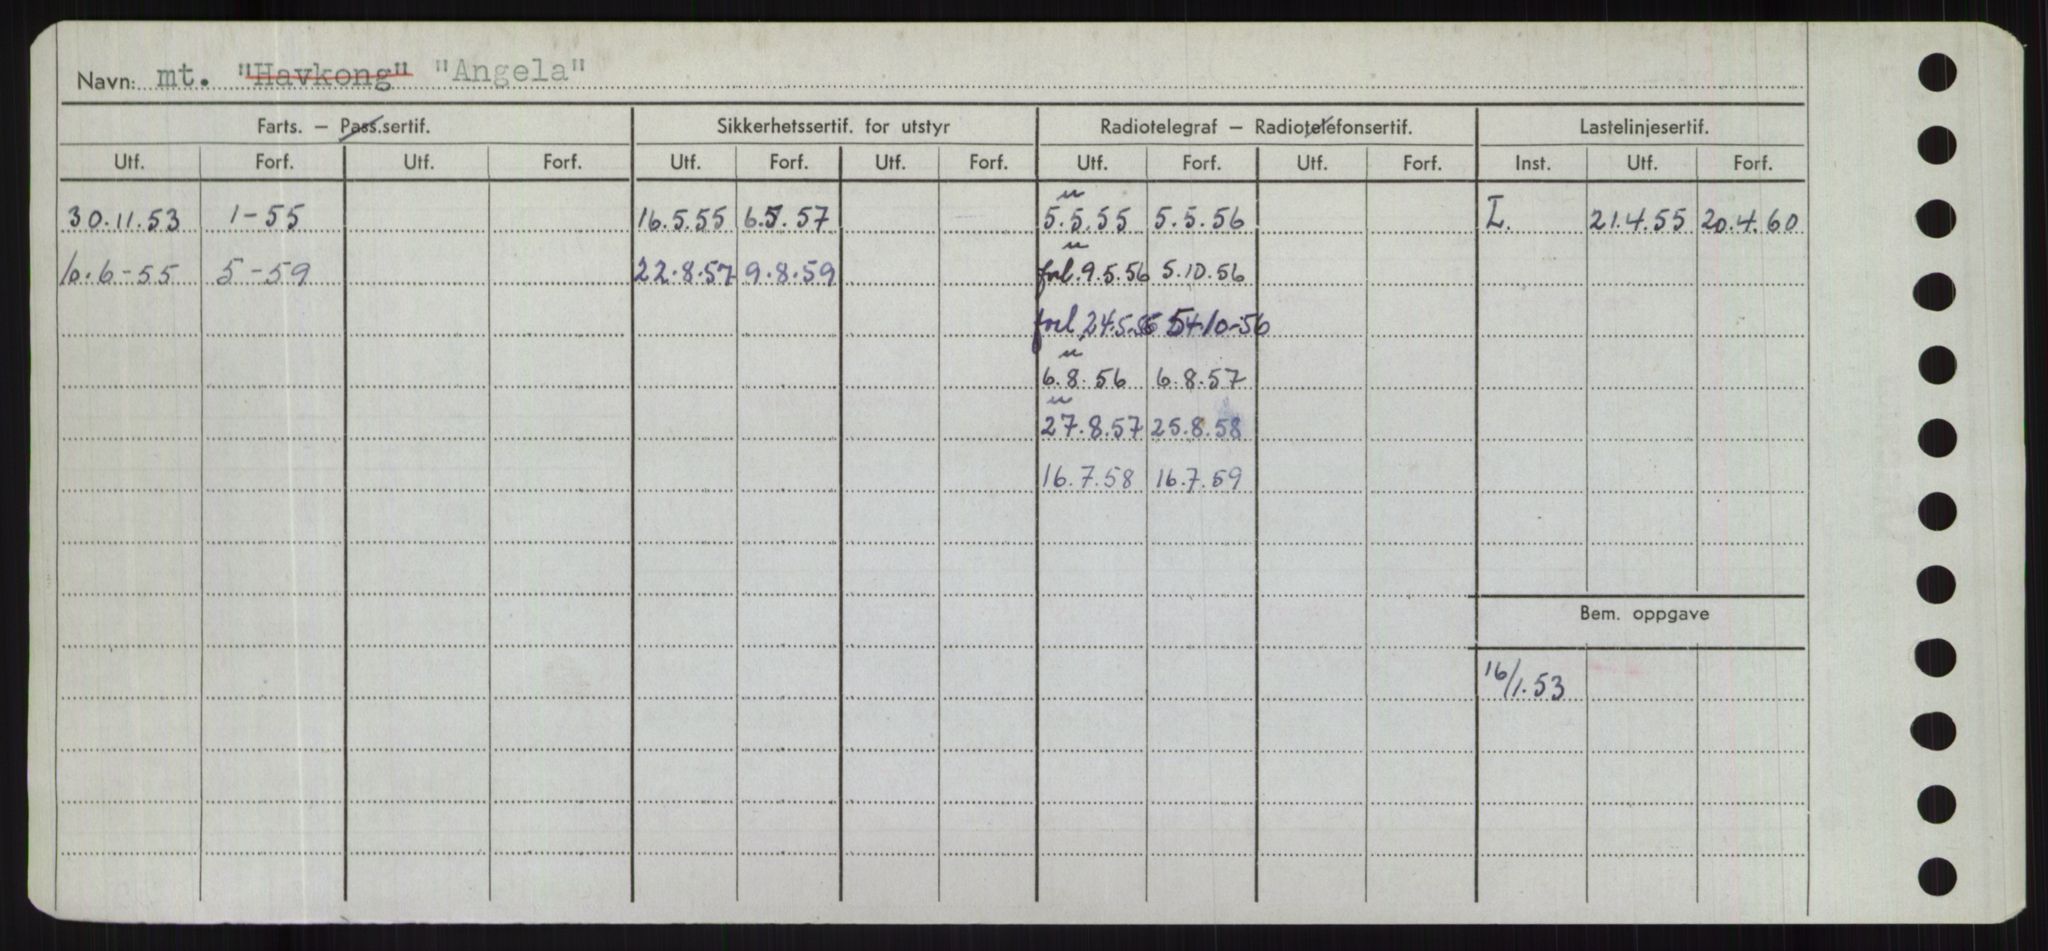 Navn: mt. "Havkong" "Angela"
Farts. – Pass.sertif. Sikkerhetssertif. for utstyr Radiotelegraf – Radiotelefonsertif. Lastelinjesertif.
Utf. Forf. Utf. Forf. Utf. Forf. Utf. Forf. Utf. Forf. Utf. Forf. Inst. Utf. Forf.
30.11.53 1-55 16.5.55 6.5.57 5.5.55 5.5.56 I. 21.4.55 20.4.60
10.6-55 5-59 22.8.57 9.8.59 forl. 9.5.56 5.10.56
forl. 24.5.56 10-56
6.8.56 6.8.57
27.8.57 25.8.58
16.7.58 16.7.59
Bem. oppgave
16/1.53